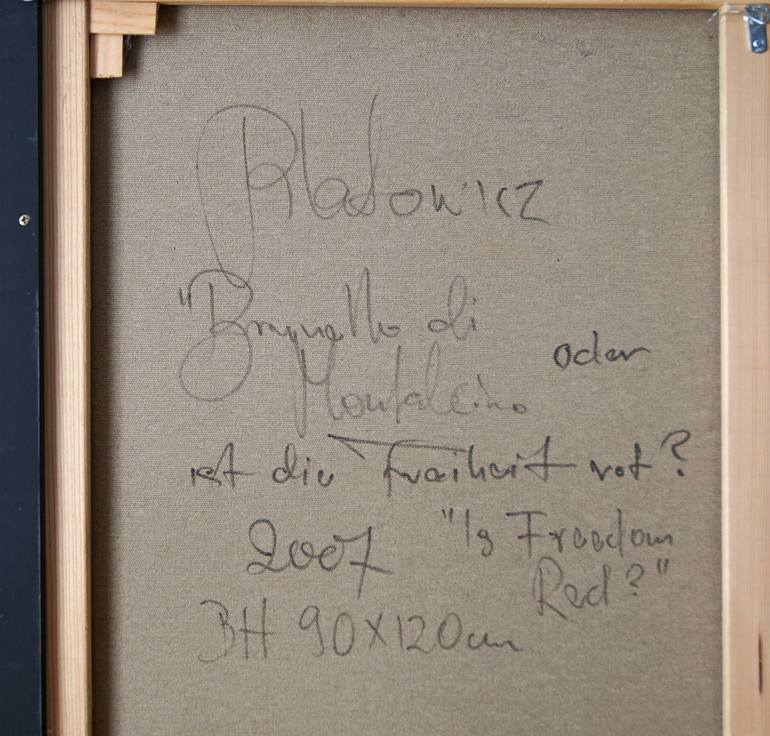 "Brunello di
Montalcino
oder
ist die Freiheit rot?
2007
"Is Freedom
Red?"
BH 90X120cm